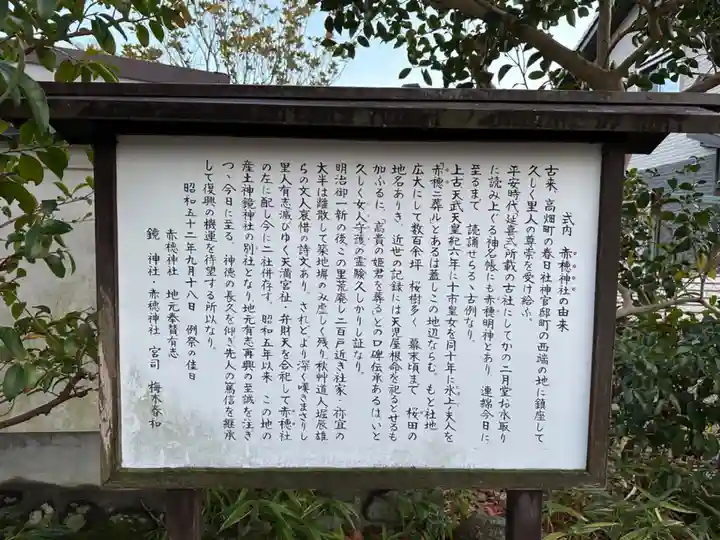 式内 赤穂神社の由来
古来、高畑町の春日社神官邸町の西端の地に鎮座して
久しく里人の尊崇を受け給ふ。
平安時代延喜式所載の古社にしてかの二月堂お水取り
に読み上ぐる神名帳にも赤穂明神とあり 連綿今日に
至るまで 読誦せらるゝ古例なり。
上古天武天皇紀六年に十市皇女を同十年に氷上夫人を
「赤穂ニ葬ル」とあるは蓋しこの地辺ならむ。もと社地
広大にして数百余坪 桜樹多く 幕末頃まで 桜田の
地名ありき、近世の記録には天児屋根命を祀るとせるも
加ふるに、「高貴の姫君を葬る」との口碑伝承あるは、いと
久しく女人守護の霊験久しかりし証なり。
明治御一新の後、この里荒廃し二百戸近き社家、祢宜の
大半は離散して築地塀のみ虚しく残り秋艸道人、堀辰雄
らの文人哀惜の詩文あり、されどより深く嘆きまさりし
里人有志滅びゆく天満宮社・弁財天を合祀して赤穂社
の左に配し今に二社併存す。昭和五年以来 この地の
産土神鏡神社の別社となり地元有志再興の至誠を注ぎ
つゝ今日に至る 神徳の長久を仰ぎ先人の篤信を継承
して復興の機運を待望する所以なり。
昭和五十二年九月十八日 例祭の佳日
赤穂神社 地元奉賛有志
鏡 神社・赤穂神社 宮司 梅木春和